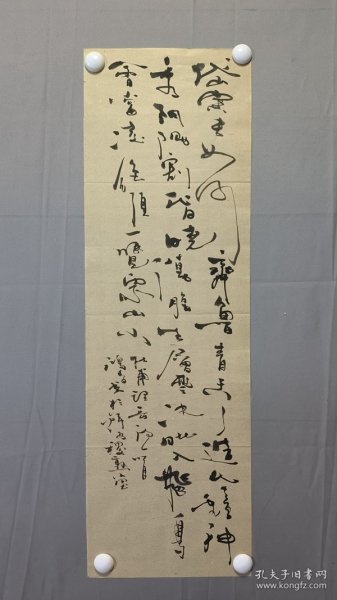 岱宗夫如何齊魯青未了造化鍾神
秀陰陽割昏曉蕩胸生層雲決眥入歸鳥
會當凌絕頂一覽衆山小
杜甫望岳詩一首
書於
孔夫子旧书网